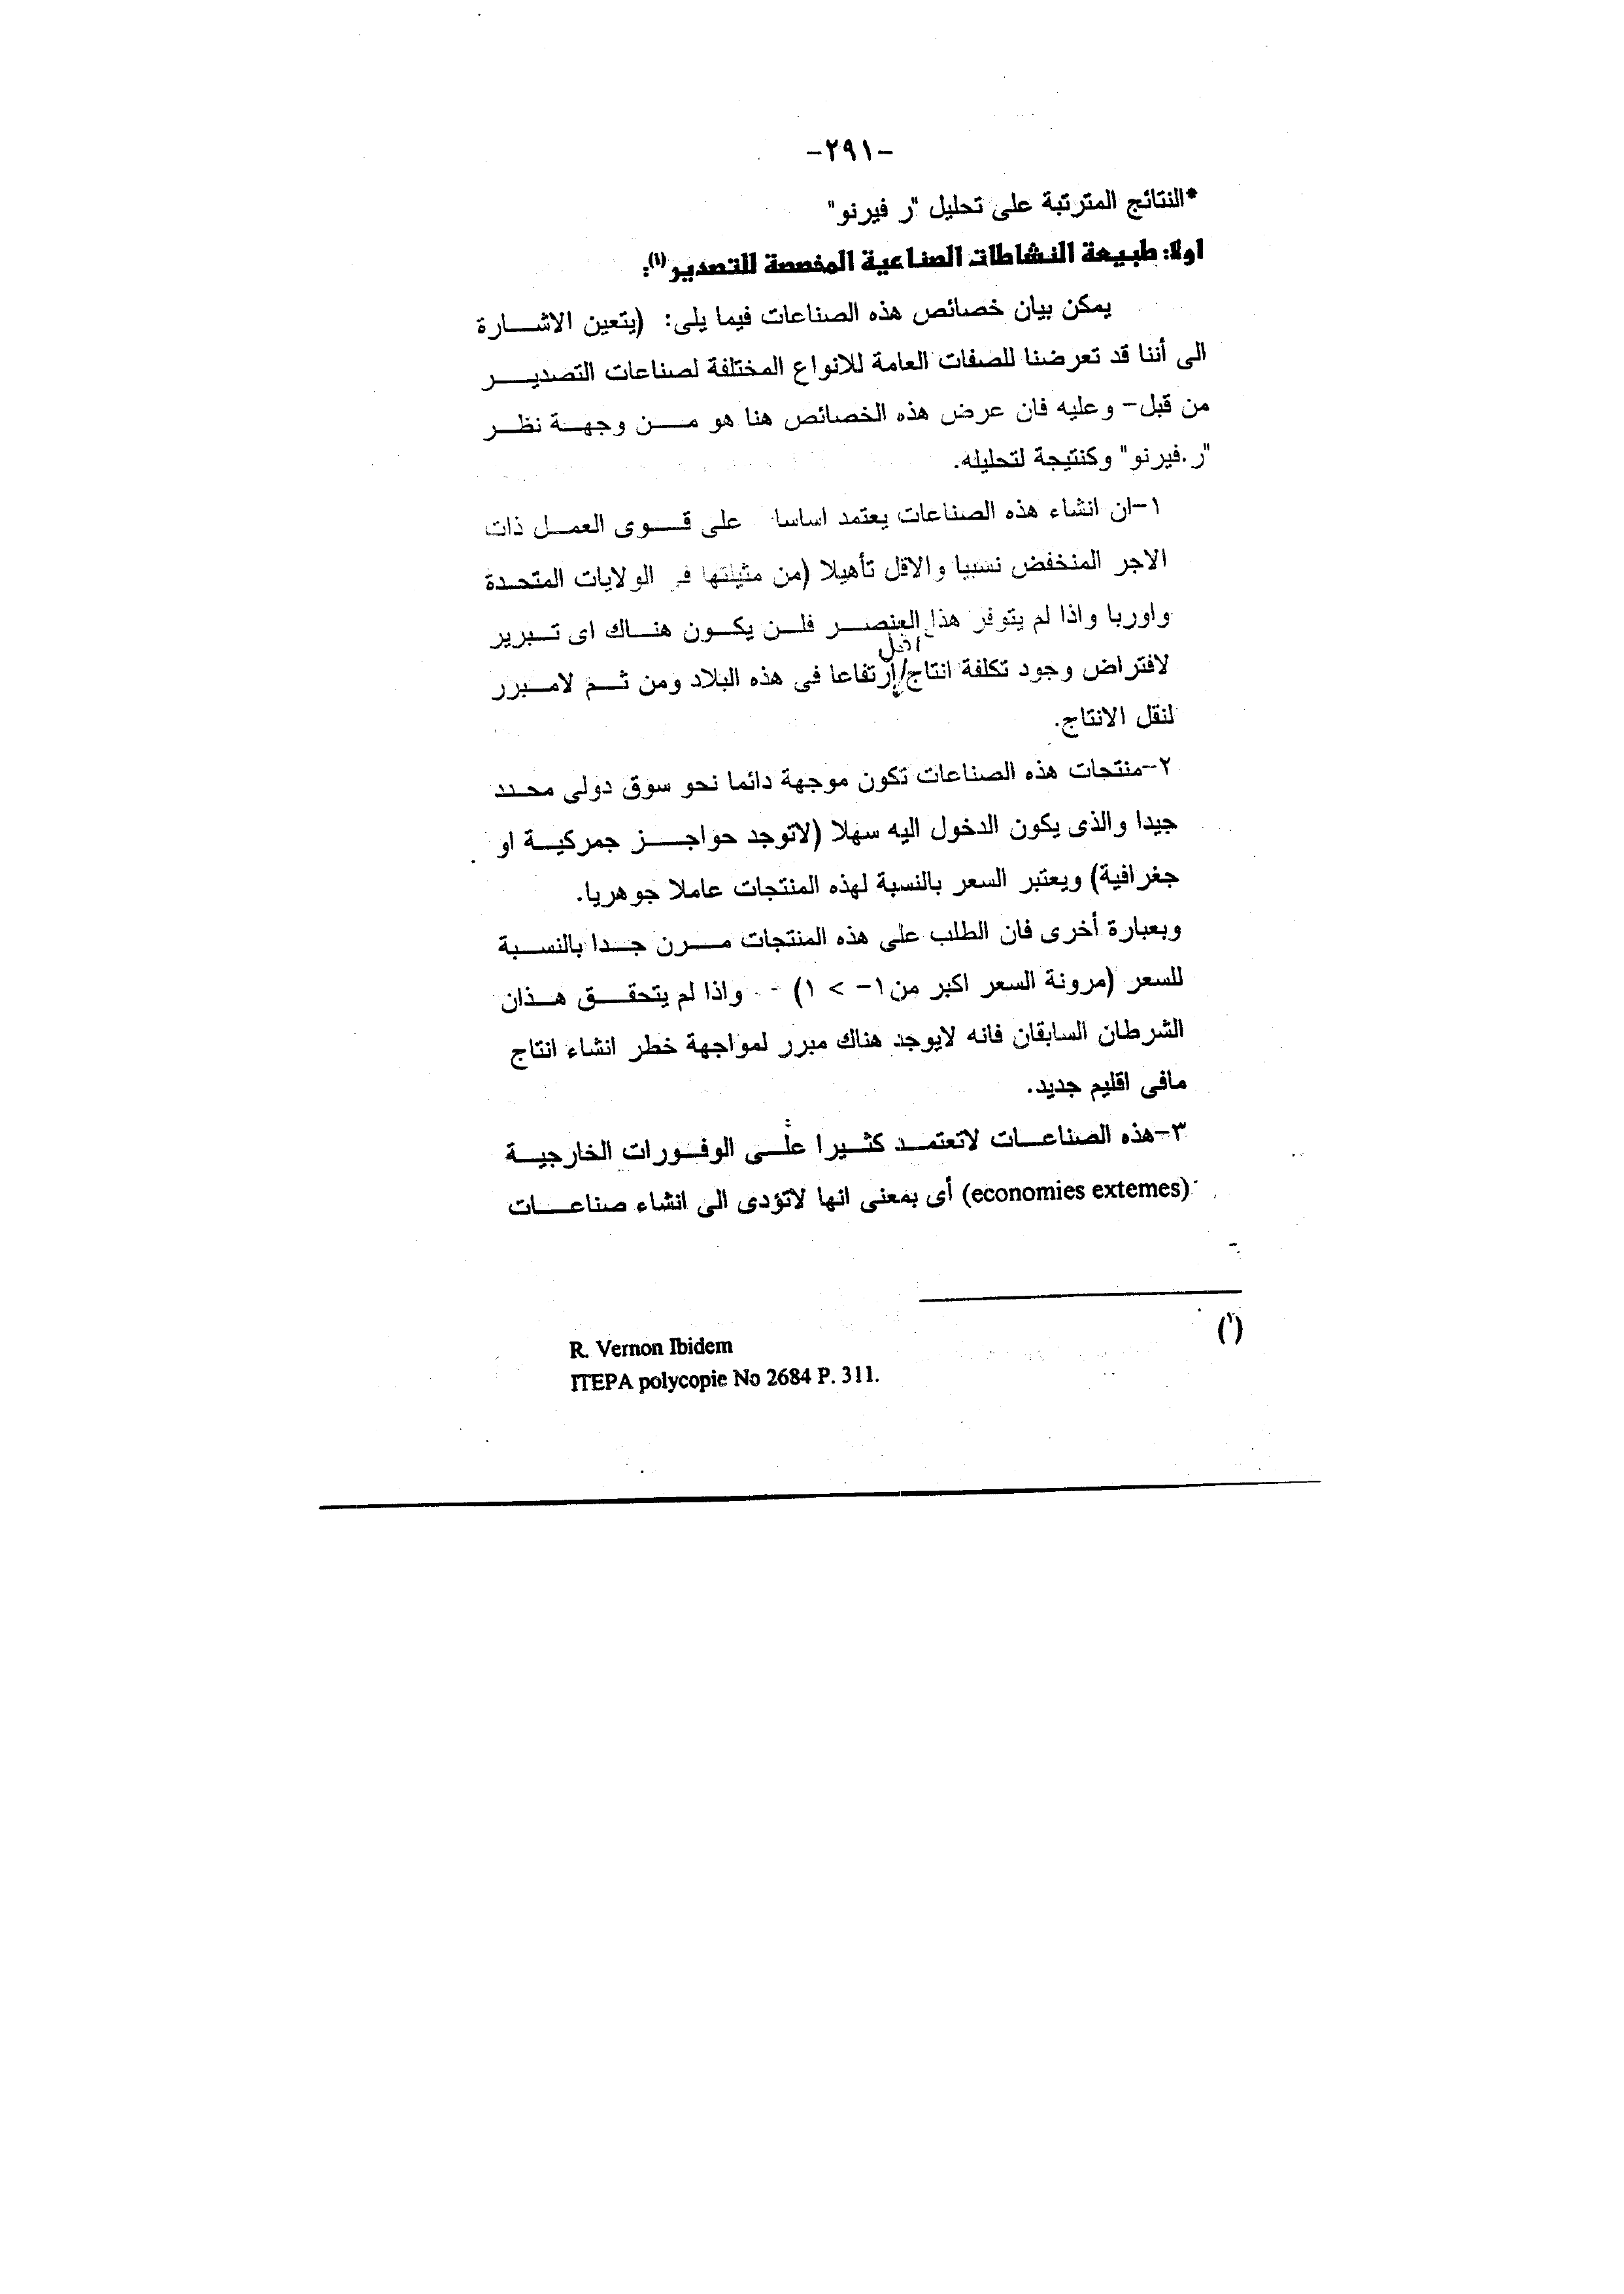 -٢٩١-
*النتائج المترتبة على تحليل "ر فيرنو"
اولا: طبيعة النشاطات الصناعية المخصصة للتصدير(١):
يمكن بيان خصائص هذه الصناعات فيما يلى: (يتعين الاشارة
الى أننا قد تعرضنا للصفات العامة للانواع المختلفة لصناعات التصدير
من قبل- وعليه فان عرض هذه الخصائص هنا هو من وجهة نظر
"ر.فيرنو" وكنتيجة لتحليله.
١-ان انشاء هذه الصناعات يعتمد اساسا على قوى العمل ذات
الاجر المنخفض نسبيا والاقل تأهيلا (من مثيلتها فى الولايات المتحدة
واوربا واذا لم يتوفر هذا العنصر فلن يكون هناك اى تبرير
اقل
لافتراض وجود تكلفة انتاج/إرتفاعا فى هذه البلاد ومن ثم لامبرر
لنقل الانتاج.
٢-منتجات هذه الصناعات تكون موجهة دائما نحو سوق دولى محدد
جيدا والذى يكون الدخول اليه سهلا (لاتوجد حواجز جمركية او
جغرافية) ويعتبر السعر بالنسبة لهذه المنتجات عاملا جوهريا.
وبعبارة أخرى فان الطلب على هذه المنتجات مرن جدا بالنسبة
للسعر (مرونة السعر اكبر من ١- > ١) - واذا لم يتحقق هذان
الشرطان السابقان فانه لايوجد هناك مبرر لمواجهة خطر انشاء انتاج
مافى اقليم جديد.
٣-هذه الصناعات لاتعتمد كثيرا على الوفورات الخارجية
(economies extemes) أى بمعنى انها لاتؤدى الى انشاء صناعات
(١)
R. Vernon Ibidem
ITEPA polycopie No 2684 P. 311.